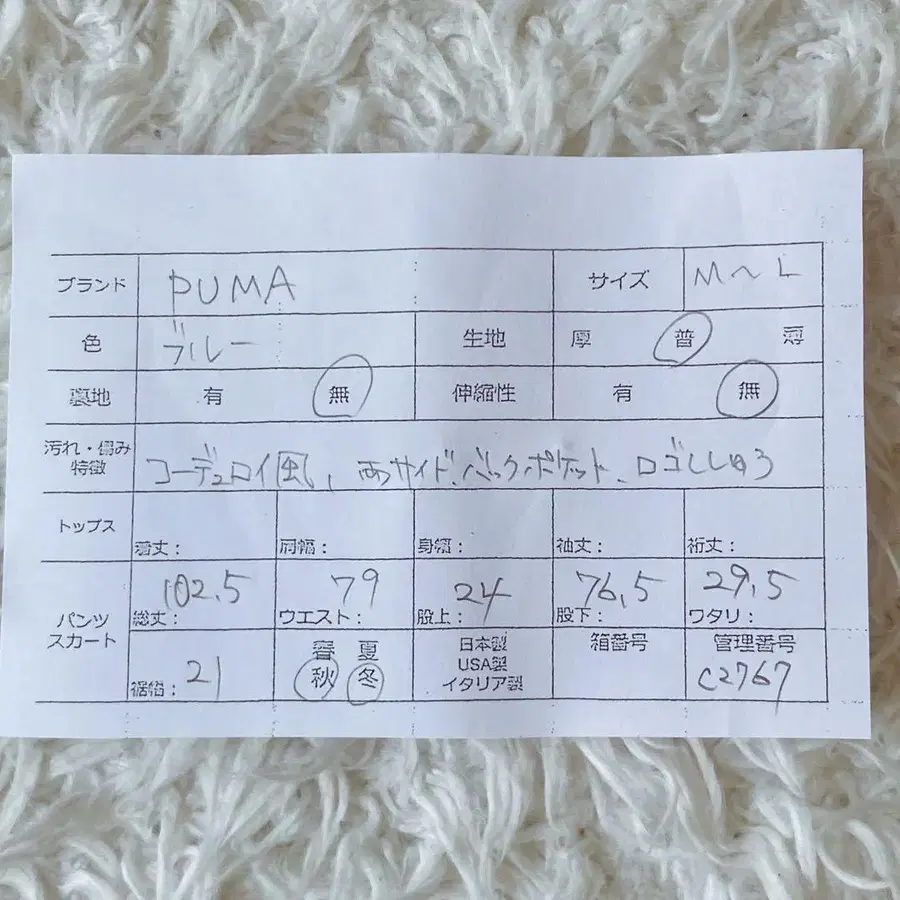 ブランド PUMA サイズ M〜L
色 ブルー 生地 厚 普 薄
裏地 有 無 伸縮性 有 無
汚れ・傷み
特徴 コーデュロイ風、両サイド、バックポケット、ロゴししゅう
トップス 着丈: 肩幅: 身幅: 袖丈: 裄丈:
パンツ
スカート
102.5 79 24 76,5 29,5
総丈: ウエスト: 股上: 股下: ワタリ:
裾幅: 21
春 夏
秋 冬
日本製
USA製
イタリア製
箱番号
管理番号
C2767